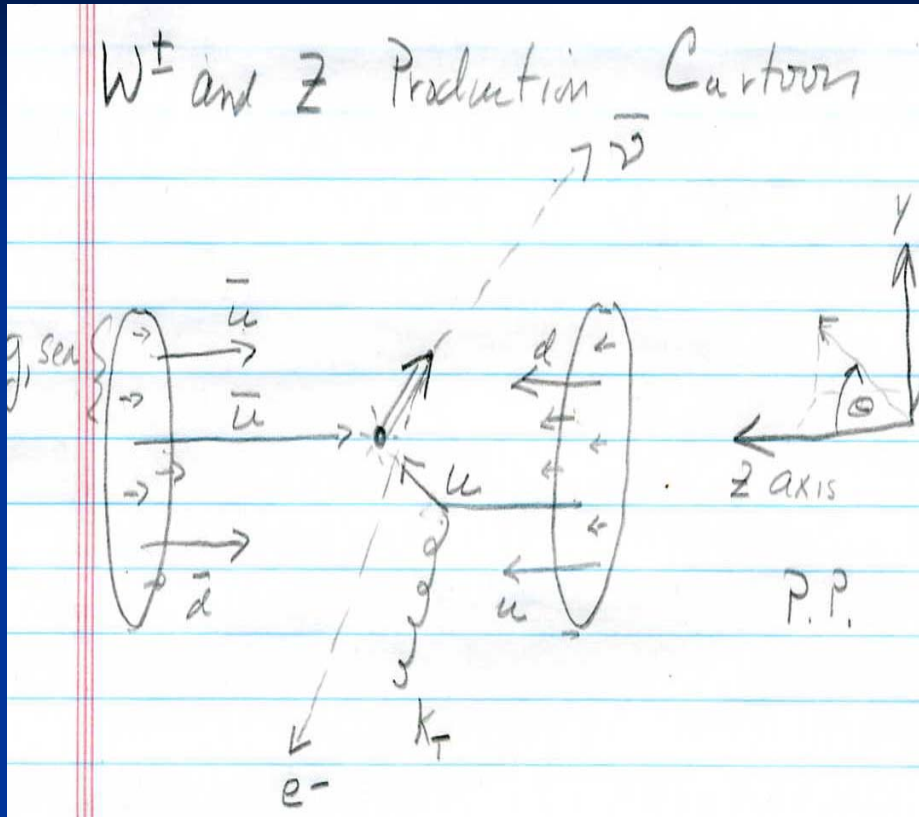 W± and Z Production Cartoon
ν̄
y
ū
g, sea {
d
ū
u
θ
z axis
d̄
u
P.P.
k_T
e-